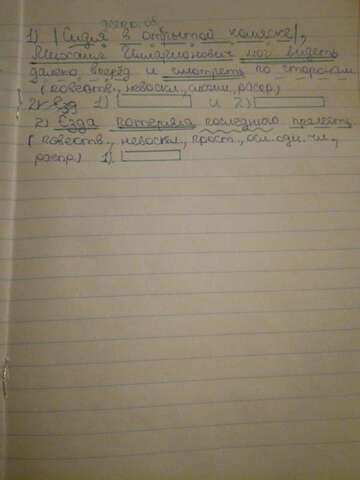 дееп. об.
1) |Сидя в открытой коляске|,
Михаил Илларионович мог видеть
далеко вперёд и смотреть по сторонам.
(повеств., невоскл.,
1) и 2)
2) Езда потеряла последнюю прелесть.
(повеств., невоскл., прост., осл. одн. чл.,
распр.) 1)